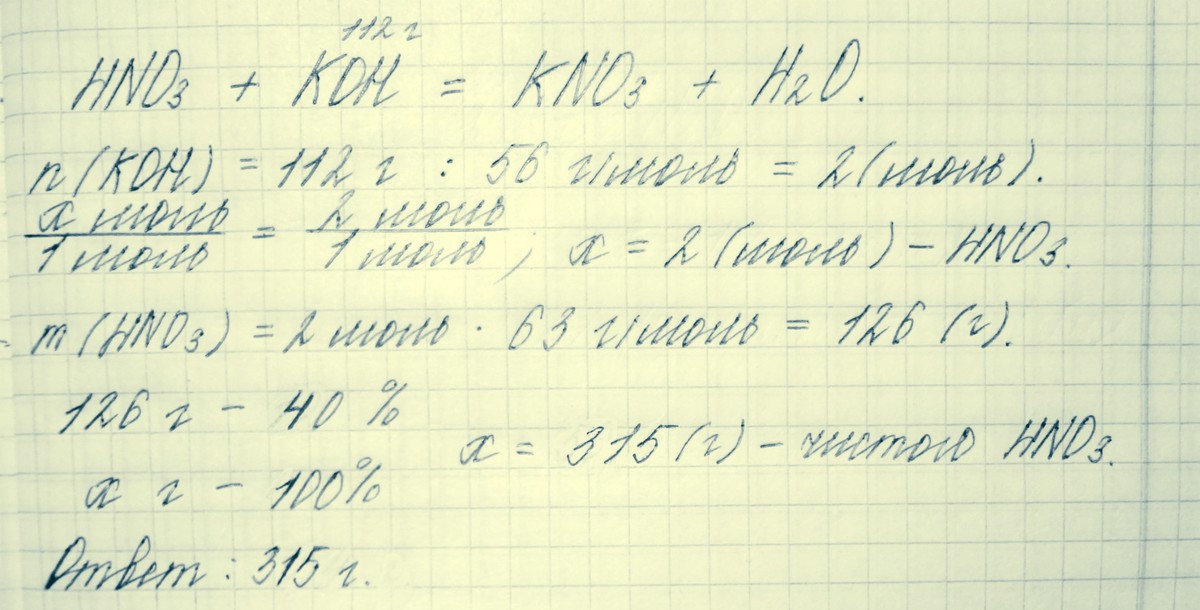 112 г
HNO₃ + KOH = KNO₃ + H₂O.
n (KOH) = 112 г : 56 г/моль = 2 (моль).
x моль / 1 моль = 2 моль / 1 моль ; x = 2 (моль) – HNO₃.
m (HNO₃) = 2 моль · 63 г/моль = 126 (г).
126 г – 40 %
x = 315 (г) – чистого HNO₃.
x г – 100%
Ответ : 315 г.